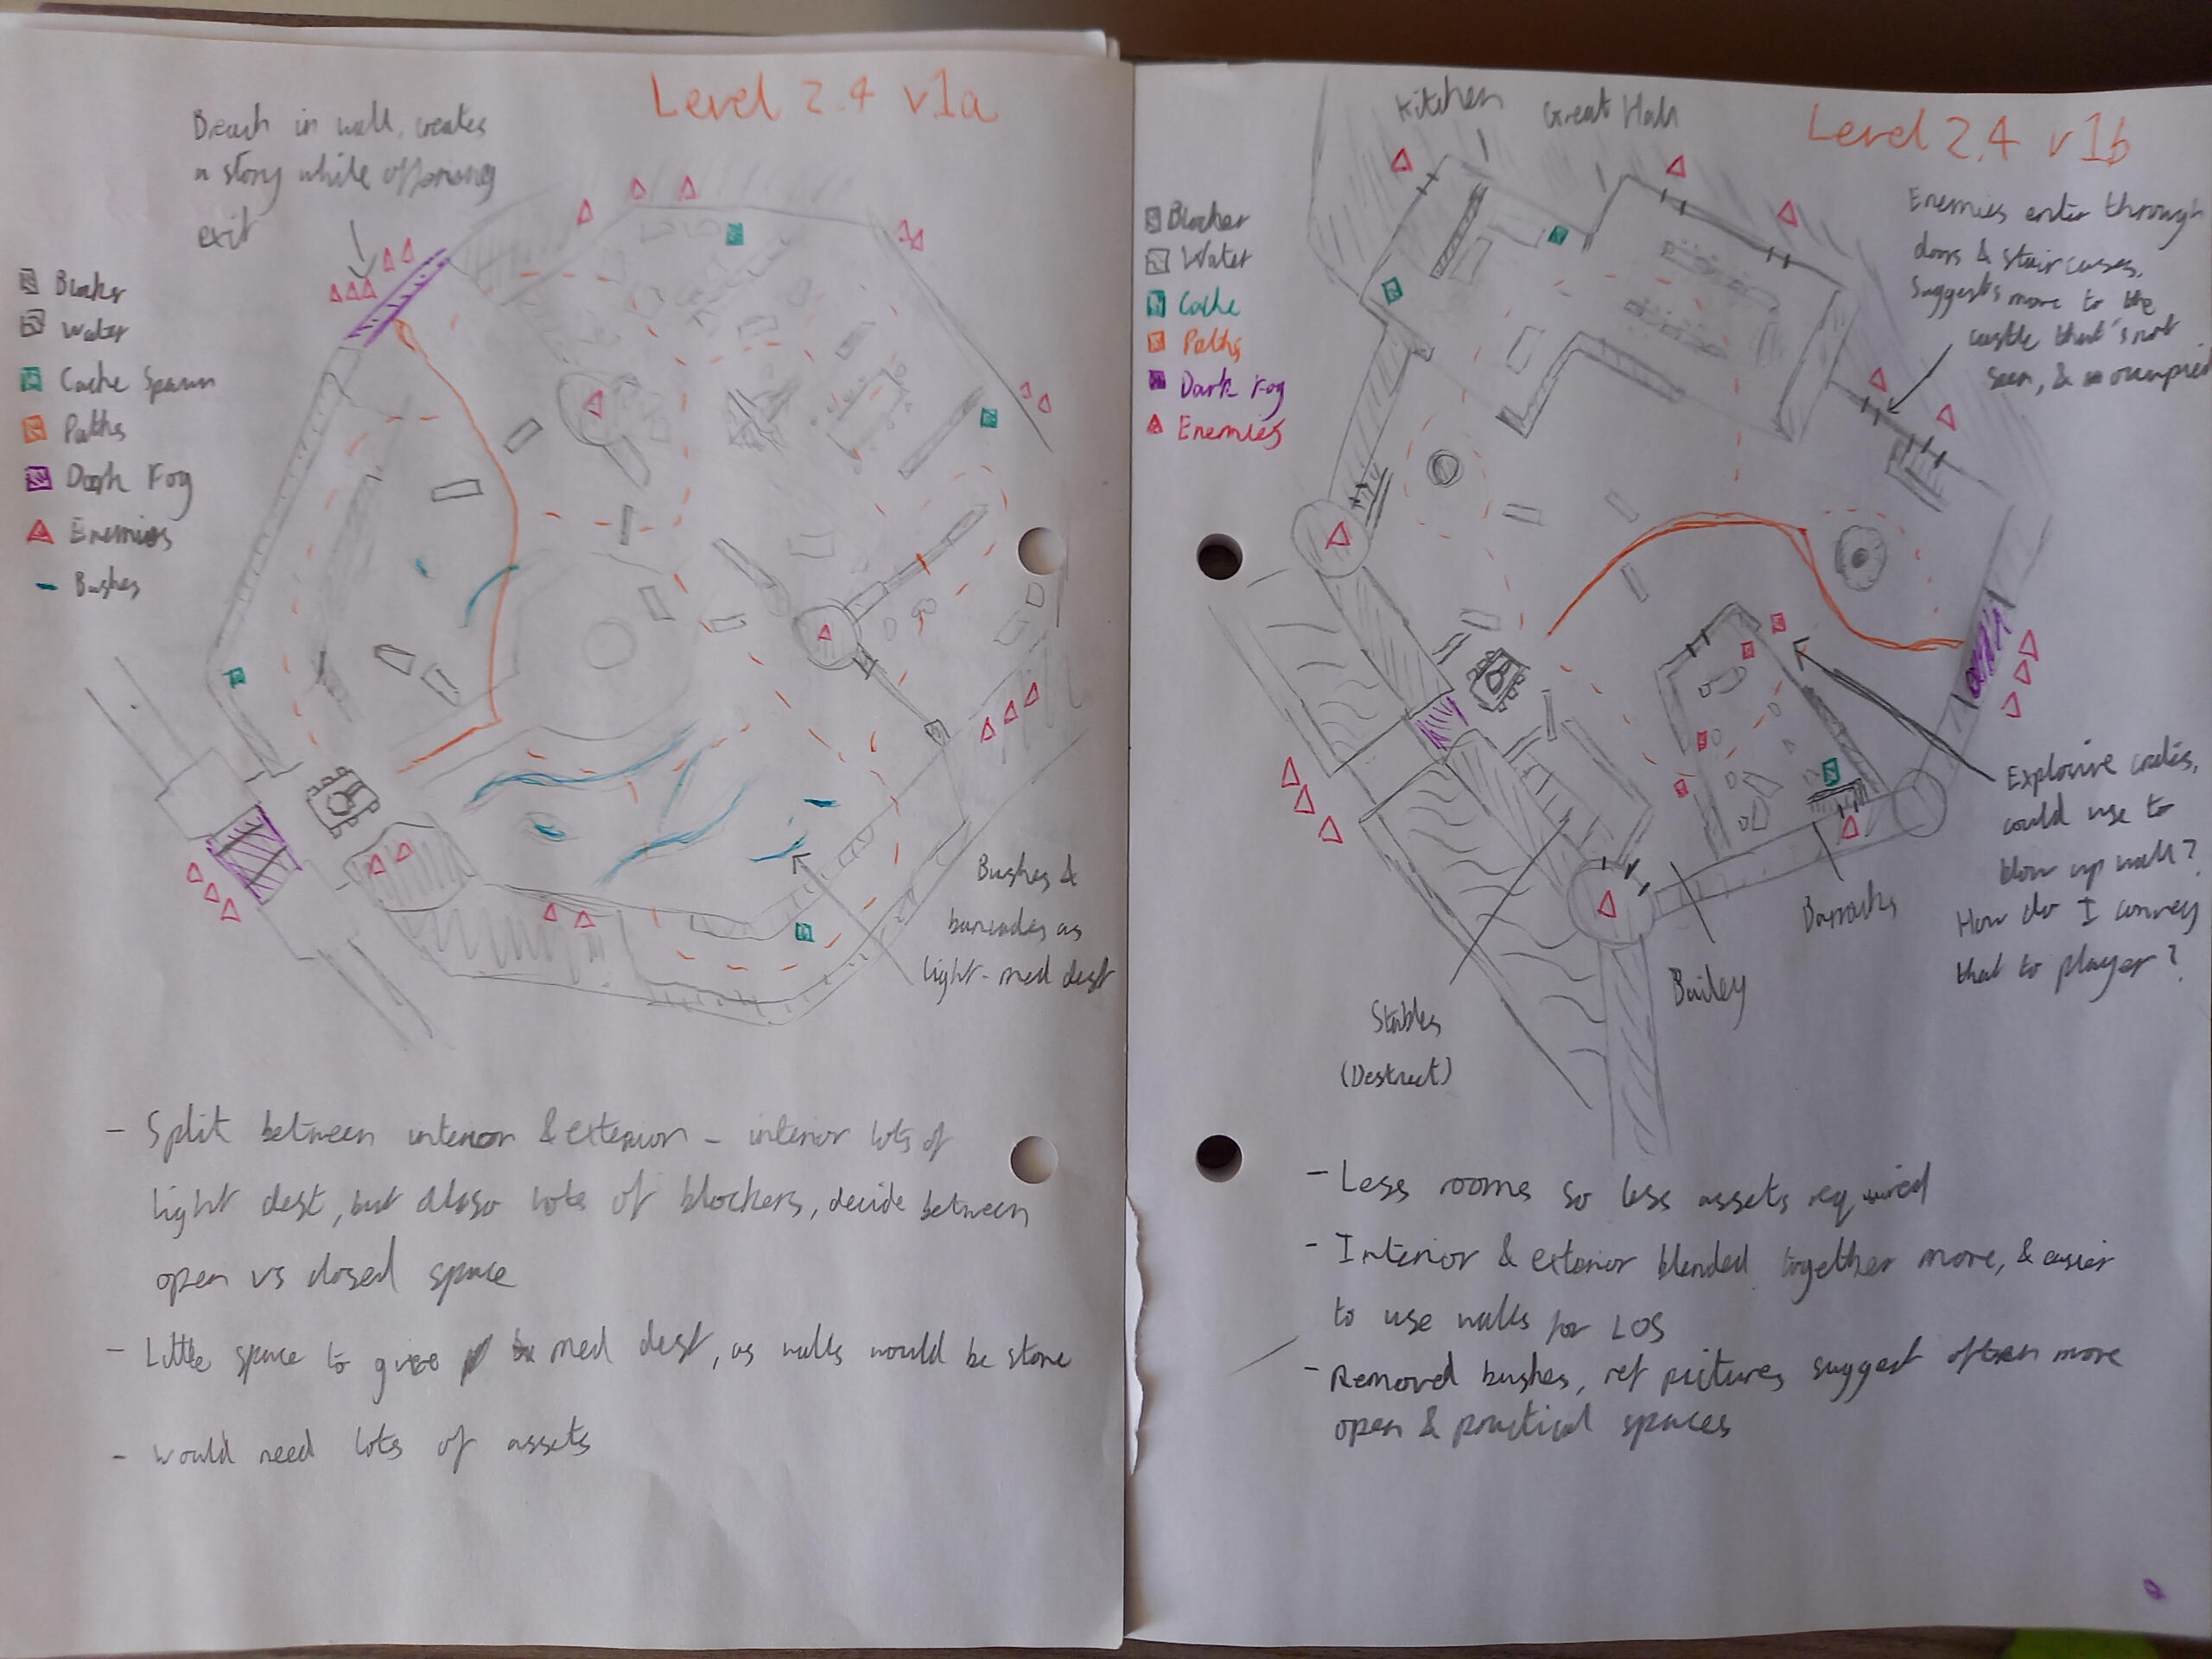 Level 2.4 v1a
Breach in wall, creates
a story while offering
exit
Blocker
Water
Cache Spawn
Paths
Dark Fog
Enemies
Bushes
Bushes &
barricades as
light-med dest
- Split between interior & exterior - interior lots of
light dest, but also lots of blockers, decide between
open vs closed space
- Little space to give med dest, as walls would be stone
- would need lots of assets
Level 2.4 v1b
Kitchen
Great Hall
Blocker
Water
Cache
Paths
Dark Fog
Enemies
Enemies enter through
doors & staircases.
Suggests more to the
castle that's not
seen, & occupied
Explosive crates,
could use to
blow up wall?
How do I convey
that to player?
Barracks
Bailey
Stables
(Destruct)
- Less rooms so less assets required
- Interior & exterior blended together more, & easier
to use walls for LOS
- Removed bushes, ref pictures suggest often more
open & practical spaces